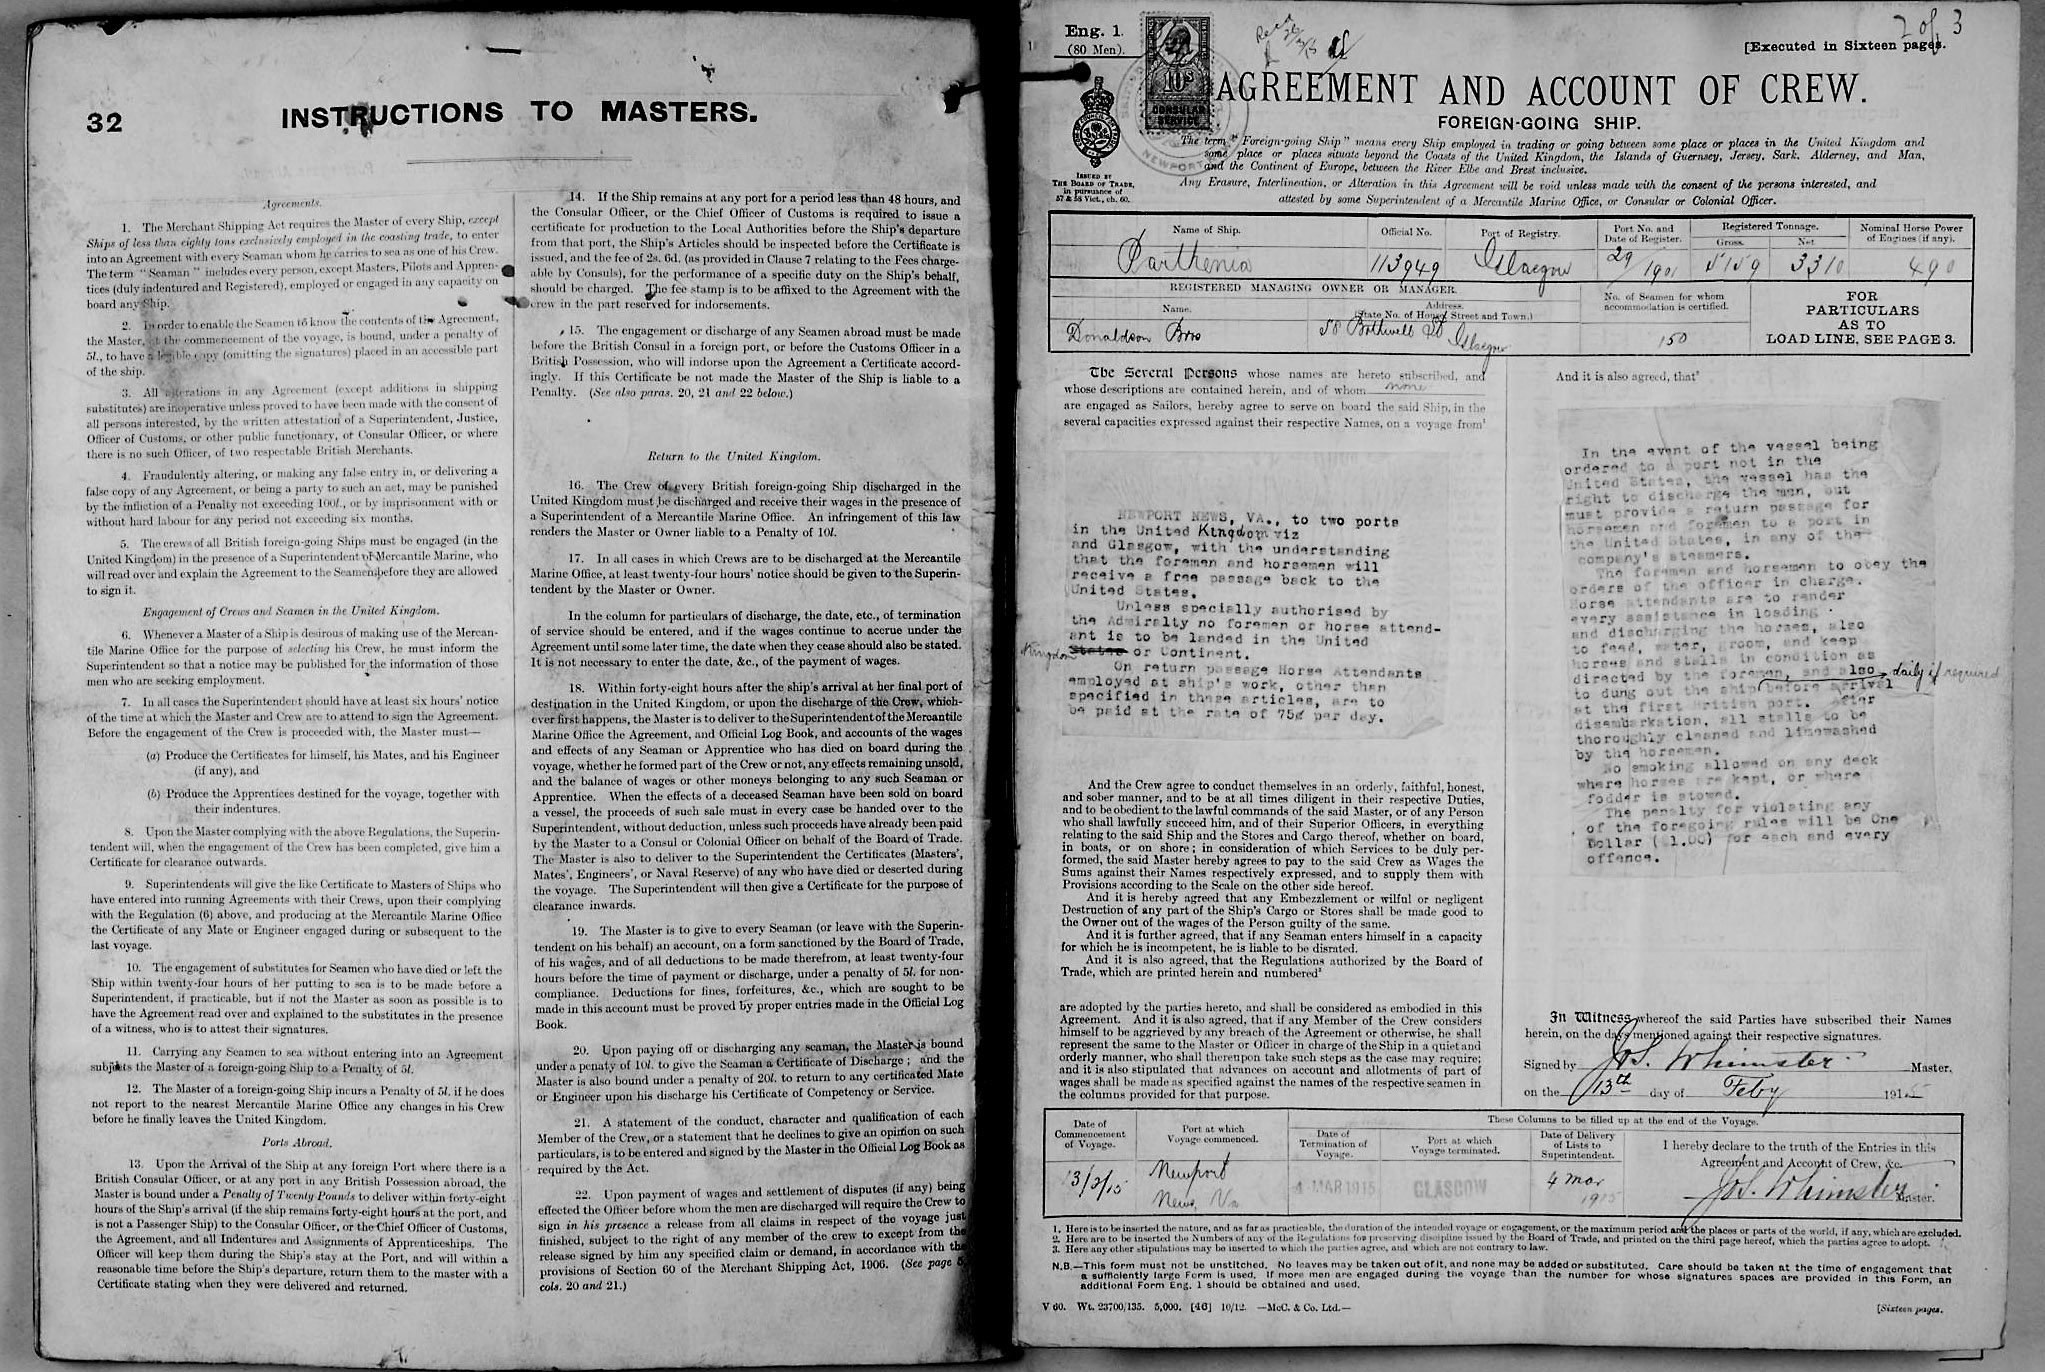 32
INSTRUCTIONS TO MASTERS.
Agreements.
1. The Merchant Shipping Act requires the Master of every Ship, except
Ships of less than eighty tons exclusively employed in the coasting trade, to enter
into an Agreement with every Seaman whom he carries to sea as one of his Crew.
The term "Seaman" includes every person, except Masters, Pilots and Appren-
tices (duly indentured and Registered), employed or engaged in any capacity on
board any Ship.
2. In order to enable the Seamen to know the contents of the Agreement,
the Master, at the commencement of the voyage, is bound, under a penalty of
5l., to have a legible copy (omitting the signatures) placed in an accessible part
of the ship.
3. All alterations in any Agreement (except additions in shipping
substitutes) are inoperative unless proved to have been made with the consent of
all persons interested, by the written attestation of a Superintendent, Justice,
Officer of Customs, or other public functionary, or Consular Officer, or where
there is no such Officer, of two respectable British Merchants.
4. Fraudulently altering, or making any false entry in, or delivering a
false copy of any Agreement, or being a party to such an act, may be punished
by the infliction of a Penalty not exceeding 100l., or by imprisonment with or
without hard labour for any period not exceeding six months.
5. The crews of all British foreign-going Ships must be engaged (in the
United Kingdom) in the presence of a Superintendent of Mercantile Marine, who
will read over and explain the Agreement to the Seamen before they are allowed
to sign it.
Engagement of Crews and Seamen in the United Kingdom.
6. Whenever a Master of a Ship is desirous of making use of the Mercan-
tile Marine Office for the purpose of selecting his Crew, he must inform the
Superintendent so that a notice may be published for the information of those
men who are seeking employment.
7. In all cases the Superintendent should have at least six hours' notice
of the time at which the Master and Crew are to attend to sign the Agreement.
Before the engagement of the Crew is proceeded with, the Master must—
(a) Produce the Certificates for himself, his Mates, and his Engineer
(if any), and
(b) Produce the Apprentices destined for the voyage, together with
their indentures.
8. Upon the Master complying with the above Regulations, the Superin-
tendent will, when the engagement of the Crew has been completed, give him a
Certificate for clearance outwards.
9. Superintendents will give the like Certificate to Masters of Ships who
have entered into running Agreements with their Crews, upon their complying
with the Regulation (6) above, and producing at the Mercantile Marine Office
the Certificate of any Mate or Engineer engaged during or subsequent to the
last voyage.
10. The engagement of substitutes for Seamen who have died or left the
Ship within twenty-four hours of her putting to sea is to be made before a
Superintendent, if practicable, but if not the Master as soon as possible is to
have the Agreement read over and explained to the substitutes in the presence
of a witness, who is to attest their signatures.
11. Carrying any Seamen to sea without entering into an Agreement
subjects the Master of a foreign-going Ship to a Penalty of 5l.
12. The Master of a foreign-going Ship incurs a Penalty of 5l. if he does
not report to the nearest Mercantile Marine Office any changes in his Crew
before he finally leaves the United Kingdom.
Ports Abroad.
13. Upon the Arrival of the Ship at any foreign Port where there is a
British Consular Officer, or at any port in any British Possession abroad, the
Master is bound under a Penalty of Twenty Pounds to deliver within forty-eight
hours of the Ship's arrival (if the ship remains forty-eight hours at the port, and
is not a Passenger Ship) to the Consular Officer, or the Chief Officer of Customs,
the Agreement, and all Indentures and Assignments of Apprenticeships. The
Officer will keep them during the Ship's stay at the Port, and will within a
reasonable time before the Ship's departure, return them to the master with a
Certificate stating when they were delivered and returned.
14. If the Ship remains at any port for a period less than 48 hours, and
the Consular Officer, or the Chief Officer of Customs is required to issue a
certificate for production to the Local Authorities before the Ship's departure
from that port, the Ship's Articles should be inspected before the Certificate is
issued, and the fee of 2s. 6d. (as provided in Clause 7 relating to the Fees charge-
able by Consuls), for the performance of a specific duty on the Ship's behalf,
should be charged. The fee stamp is to be affixed to the Agreement with the
crew in the part reserved for indorsements.
15. The engagement or discharge of any Seamen abroad must be made
before the British Consul in a foreign port, or before the Customs Officer in a
British Possession, who will indorse upon the Agreement a Certificate accord-
ingly. If this Certificate be not made the Master of the Ship is liable to a
Penalty. (See also paras. 20, 21 and 22 below.)
Return to the United Kingdom.
16. The Crew of every British foreign-going Ship discharged in the
United Kingdom must be discharged and receive their wages in the presence of
a Superintendent of a Mercantile Marine Office. An infringement of this law
renders the Master or Owner liable to a Penalty of 10l.
17. In all cases in which Crews are to be discharged at the Mercantile
Marine Office, at least twenty-four hours' notice should be given to the Superin-
tendent by the Master or Owner.
In the column for particulars of discharge, the date, etc., of termination
of service should be entered, and if the wages continue to accrue under the
Agreement until some later time, the date when they cease should also be stated.
It is not necessary to enter the date, &c., of the payment of wages.
18. Within forty-eight hours after the ship's arrival at her final port of
destination in the United Kingdom, or upon the discharge of the Crew, which-
ever first happens, the Master is to deliver to the Superintendent of the Mercantile
Marine Office the Agreement, and Official Log Book, and accounts of the wages
and effects of any Seaman or Apprentice who has died on board during the
voyage, whether he formed part of the Crew or not, any effects remaining unsold,
and the balance of wages or other moneys belonging to any such Seaman or
Apprentice. When the effects of a deceased Seaman have been sold on board
a vessel, the proceeds of such sale must in every case be handed over to the
Superintendent, without deduction, unless such proceeds have already been paid
by the Master to a Consul or Colonial Officer on behalf of the Board of Trade.
The Master is also to deliver to the Superintendent the Certificates (Masters',
Mates', Engineers', or Naval Reserve) of any who have died or deserted during
the voyage. The Superintendent will then give a Certificate for the purpose of
clearance inwards.
19. The Master is to give to every Seaman (or leave with the Superin-
tendent on his behalf) an account, on a form sanctioned by the Board of Trade,
of his wages, and of all deductions to be made therefrom, at least twenty-four
hours before the time of payment or discharge, under a penalty of 5l. for non-
compliance. Deductions for fines, forfeitures, &c., which are sought to be
made in this account must be proved by proper entries made in the Official Log
Book.
20. Upon paying off or discharging any seaman, the Master is bound
under a penaty of 10l. to give the Seaman a Certificate of Discharge; and the
Master is also bound under a penalty of 20l. to return to any certificated Mate
or Engineer upon his discharge his Certificate of Competency or Service.
21. A statement of the conduct, character and qualification of each
Member of the Crew, or a statement that he declines to give an opinion on such
particulars, is to be entered and signed by the Master in the Official Log Book as
required by the Act.
22. Upon payment of wages and settlement of disputes (if any) being
effected the Officer before whom the men are discharged will require the Crew to
sign in his presence a release from all claims in respect of the voyage just
finished, subject to the right of any member of the crew to except from the
release signed by him any specified claim or demand, in accordance with the
provisions of Section 60 of the Merchant Shipping Act, 1906. (See page
cols. 20 and 21.)
Eng. 1.
(80 Men).
2 of 3
[Executed in Sixteen pages.
10s
CONSULAR
SERVICE
AGREEMENT AND ACCOUNT OF CREW.
FOREIGN-GOING SHIP.
ISSUED BY
THE BOARD OF TRADE,
in pursuance of
57 & 58 Vict., ch. 60.
The term "Foreign-going Ship" means every Ship employed in trading or going between some place or places in the United Kingdom and
some place or places situate beyond the Coasts of the United Kingdom, the Islands of Guernsey, Jersey, Sark, Alderney, and Man,
and the Continent of Europe, between the River Elbe and Brest inclusive.
Any Erasure, Interlineation, or Alteration in this Agreement will be void unless made with the consent of the persons interested, and
attested by some Superintendent of a Mercantile Marine Office, or Consular or Colonial Officer.
Name of Ship. Official No. Port of Registry. Port No. and Date of Register. Registered Tonnage. Gross. Net Nominal Horse Power of Engines (if any).
Parthenia 113949 Glasgow 29/1901 5159 3310 490
REGISTERED MANAGING OWNER OR MANAGER.
Name. Address. (State No. of House, Street and Town.)
No. of Seamen for whom accommodation is certified.
Donaldson Bros 58 Bothwell St Glasgow 150
FOR
PARTICULARS
AS TO
LOAD LINE, SEE PAGE 3.
The Several Persons whose names are hereto subscribed, and
whose descriptions are contained herein, and of whom none
are engaged as Sailors, hereby agree to serve on board the said Ship, in the
several capacities expressed against their respective Names, on a voyage from¹
NEWPORT NEWS, VA., to two ports
in the United Kingdom viz
and Glasgow, with the understanding
that the foremen and horsemen will
receive a free passage back to the
United States.
Unless specially authorised by
the Admiralty no foremen or horse attend-
ant is to be landed in the United
Kingdom States or Continent.
On return passage Horse Attendants
employed at ship's work, other than
specified in these articles, are to
be paid at the rate of 75¢ per day.
And the Crew agree to conduct themselves in an orderly, faithful, honest,
and sober manner, and to be at all times diligent in their respective Duties,
and to be obedient to the lawful commands of the said Master, or of any Person
who shall lawfully succeed him, and of their Superior Officers, in everything
relating to the said Ship and the Stores and Cargo thereof, whether on board,
in boats, or on shore; in consideration of which Services to be duly per-
formed, the said Master hereby agrees to pay to the said Crew as Wages the
Sums against their Names respectively expressed, and to supply them with
Provisions according to the Scale on the other side hereof.
And it is hereby agreed that any Embezzlement or wilful or negligent
Destruction of any part of the Ship's Cargo or Stores shall be made good to
the Owner out of the wages of the Person guilty of the same.
And it is further agreed, that if any Seaman enters himself in a capacity
for which he is incompetent, he is liable to be disrated.
And it is also agreed, that the Regulations authorized by the Board of
Trade, which are printed herein and numbered²
are adopted by the parties hereto, and shall be considered as embodied in this
Agreement. And it is also agreed, that if any Member of the Crew considers
himself to be aggrieved by any breach of the Agreement or otherwise, he shall
represent the same to the Master or Officer in charge of the Ship in a quiet and
orderly manner, who shall thereupon take such steps as the case may require;
and it is also stipulated that advances on account and allotments of part of
wages shall be made as specified against the names of the respective seamen in
the columns provided for that purpose.
And it is also agreed, that³
In the event of the vessel being
ordered to a port not in the
United States, the vessel has the
right to discharge the men, but
must provide a return passage for
horsemen and foremen to a port in
the United States, in any of the
company's steamers.
The foremen and horsemen to obey the
orders of the officer in charge.
Horse attendants are to render
every assistance in loading
and discharging the horses, also
to feed, water, groom, and keep
horses and stalls in condition as
directed by the foremen, and also daily if required
to dung out the ship before arrival
at the first British port. After
disembarkation, all stalls to be
thoroughly cleaned and limewashed
by the horsemen.
No smoking allowed on any deck
where horses are kept, or where
fodder is stowed.
The penalty for violating any
of the foregoing rules will be One
Dollar ($1.00) for each and every
offence.
In Witness whereof the said Parties have subscribed their Names
herein, on the days mentioned against their respective signatures.
Signed by Jo S. Whimster Master.
on the 13th day of Feby 1915
These Columns to be filled up at the end of the Voyage.
Date of Commencement of Voyage. Port at which Voyage commenced. Date of Termination of Voyage. Port at which Voyage terminated. Date of Delivery of Lists to Superintendent.
I hereby declare to the truth of the Entries in this
Agreement and Account of Crew, &c.
13/2/15 Newport News, Va 4 MAR 1915 GLASGOW 4 Mar 1915 Jo S. Whimster Master.
1. Here is to be inserted the nature, and as far as practicable, the duration of the intended voyage or engagement, or the maximum period and the places or parts of the world, if any, which are excluded.
2. Here are to be inserted the Numbers of any of the Regulations for preserving discipline issued by the Board of Trade, and printed on the third page hereof, which the parties agree to adopt.
3. Here any other stipulations may be inserted to which the parties agree, and which are not contrary to law.
N.B.—This form must not be unstitched. No leaves may be taken out of it, and none may be added or substituted. Care should be taken at the time of engagement that
a sufficiently large Form is used. If more men are engaged during the voyage than the number for whose signatures spaces are provided in this Form, an
additional Form Eng. 1 should be obtained and used.
V 60. Wt. 23700/135. 5,000. [46] 10/12. —McC. & Co. Ltd.—
[Sixteen pages.